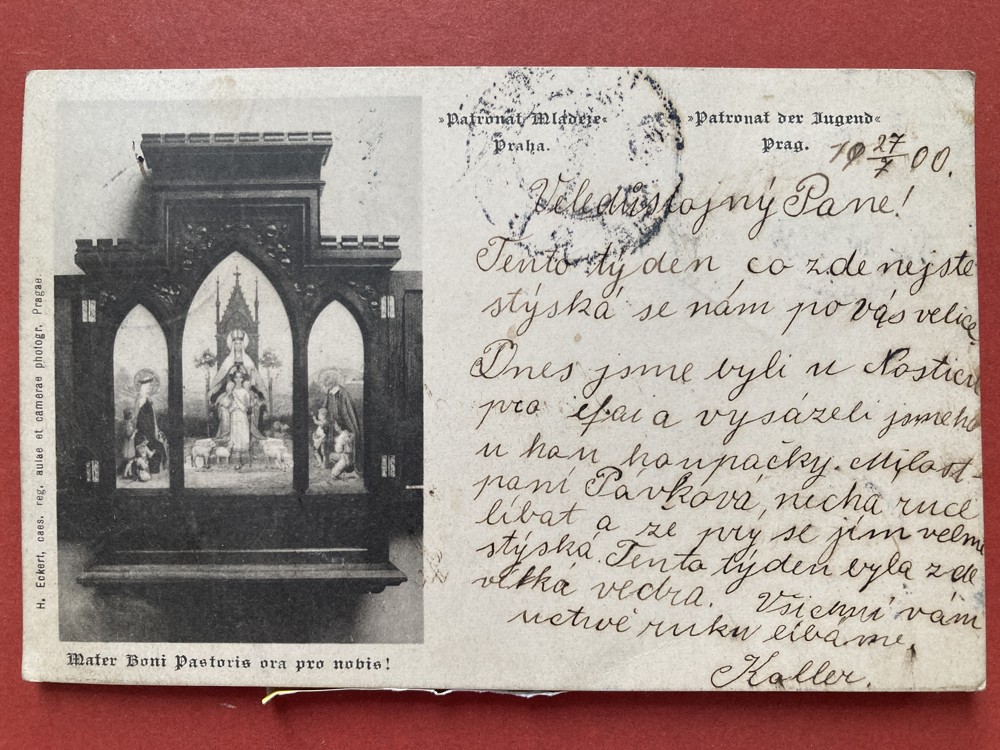 »Patronat Mládeže«
Praha.
»Patronat der Jugend«
Prag.
19 27/7 00.
Veledůstojný Pane!
Tento týden co zde nejste
stýská se nám po vás velice.
Dnes jsme byli u
pro a vysázeli jsme ho
u houpačky. Milost-
paní Pávková, nechá ruce
líbat a že prý se jim velmi
stýská. Tento týden byla zde
velká vedra. Všichni vám
uctivě ruku líbáme.
Koller.
H. Eckert, caes. reg. aulae et camerae photogr. Pragae.
Mater Boni Pastoris ora pro nobis!